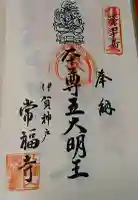 奉納
本尊五大明王
伊賀神戸
常福寺